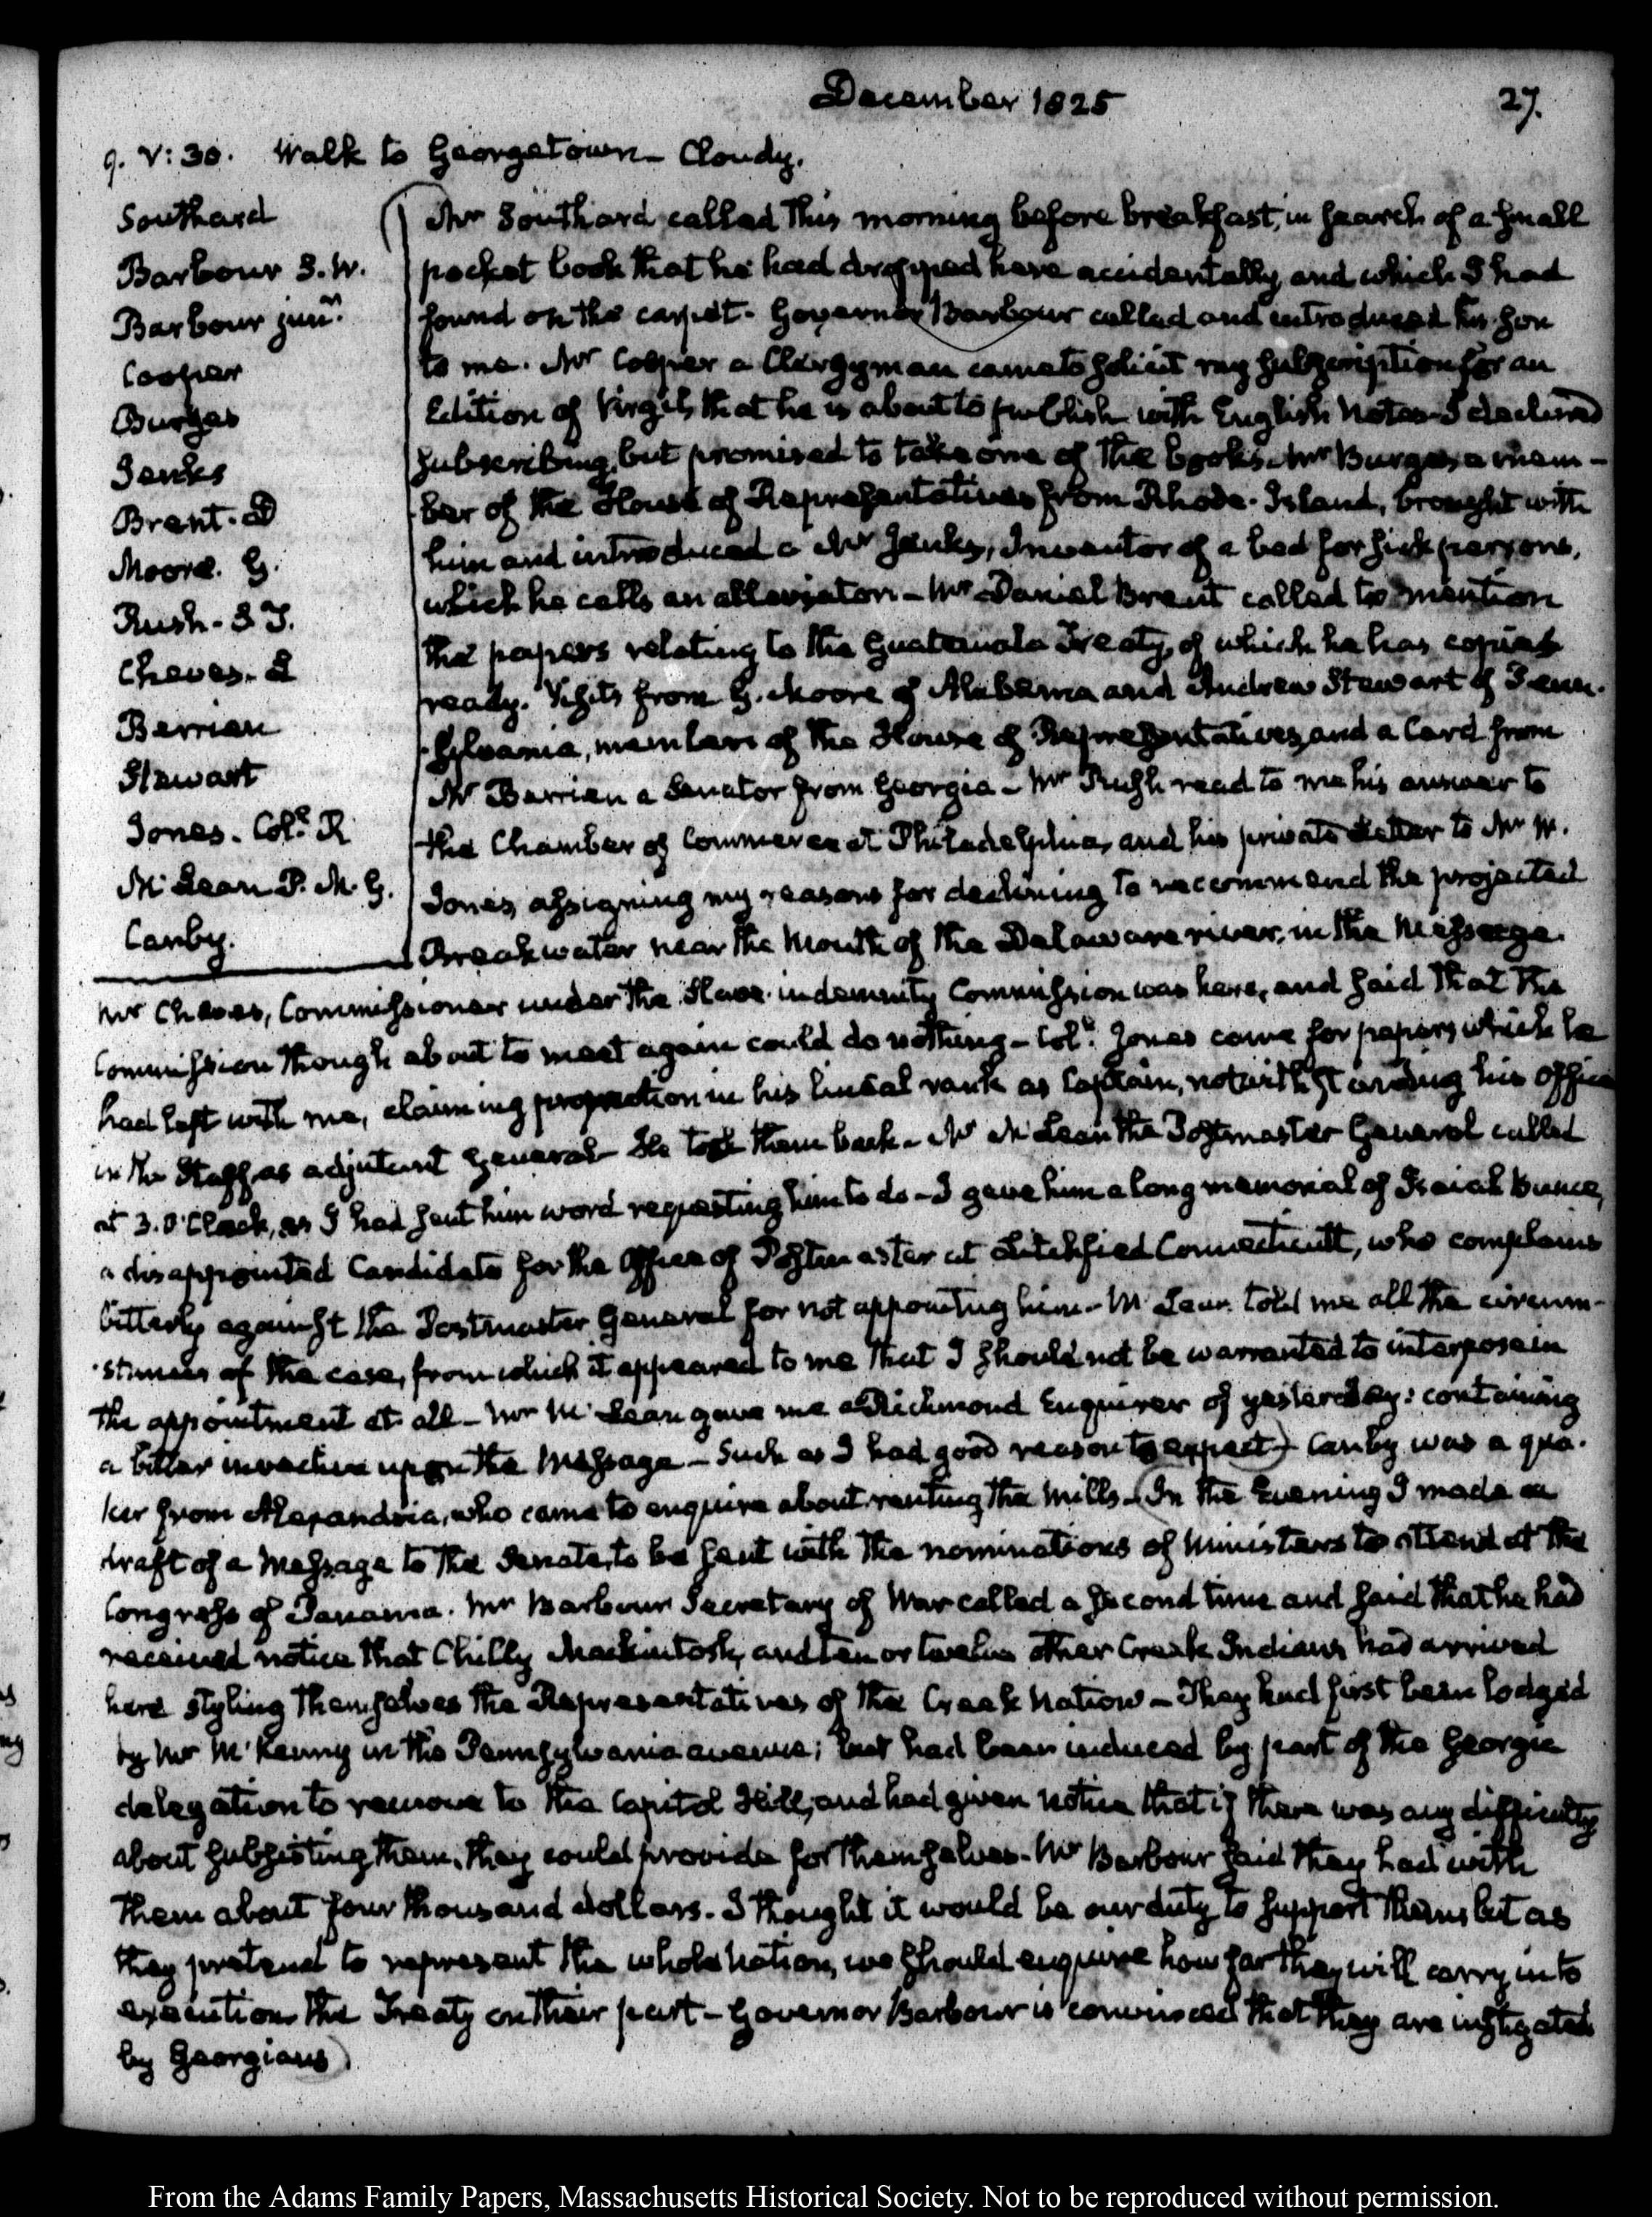 December 1825
27.
9. V:30. Walk to Georgetown – Cloudy.
Southard
Barbour S.W.
Barbour junr.
Cooper
Burges
Jenks
Brent. D
Moore. G.
Rush - S T.
Cheves. L
Berrien
Stewart
Jones. Colo. R
McLean P.M.G.
Canby.
Mr Southard called this morning before breakfast, in search of a small
pocket book that he had dropped here accidentally and which I had
found on the carpet. Governor Barbour called and introduced his son
to me. Mr Cooper a Clergyman came to solicit my subscription for an
Edition of Virgil, that he is about to publish with English Notes – I declined
subscribing, but promised to take one of the books. Mr Burges, a mem-
ber of the House of Representatives from Rhode-Island, brought with
him and introduced a Mr Jenks, Inventor of a bed for sick persons,
which he calls an alleviator – Mr Daniel Brent called to mention
the papers relating to the Guatemala Treaty, of which he has copies
ready. Visits from G. Moore of Alabama and Andrew Stewart of Penn-
sylvania, members of the House of Representatives, and a Card from
Mr Berrien a Senator from Georgia – Mr Rush read to me his answer to
the Chamber of Commerce at Philadelphia, and his private Letter to Mr W.
Jones, assigning my reasons for declining to recommend the projected
Breakwater near the Mouth of the Delaware river, in the Message.
Mr Cheves, Commissioner under the Slave indemnity Commission was here, and said that the
Commission though about to meet again could do nothing – Colo. Jones came for papers which he
had left with me, claiming promotion in his lineal rank as Captain, notwithstanding his Office
in the Staff, as adjutant General – He took them back – Mr McLean the Postmaster General called
at 3. O'Clock, as I had sent him word requesting him to do – I gave him a long memorial of Isaiah Bunce,
a disappointed Candidate for the Office of Postmaster at Litchfied Connecticutt, who complains
bitterly against the Postmaster General for not appointing him – McLean told me all the circum-
-stances of the case, from which it appeared to me that I should not be warranted to interpose in
the appointment at all – Mr McLean gave me a Richmond Enquirer of yesterday: containing
a bitter invective upon the Message – Such as I had good reason to expect) Canby was a qua-
ker from Alexandria, who came to enquire about renting the Mills – (In the Evening I made a
draft of a Message to the Senate, to be sent with the nominations of Ministers to attend at the
Congress of Panama. Mr Barbour Secretary of War called a second time and said that he had
received notice that Chilly Mackintosh, and ten or twelve other Creek Indians had arrived
here styling themselves the Representatives of the Creek Nation – They had first been lodged
by Mr McKenny in the Pennsylvania avenue; but had been induced by part of the Georgia
delegation to remove to the Capitol Hill, and had given notice that if there was any difficulty
about subsisting them, they could provide for themselves – Mr Barbour said they had with
them about four thousand dollars. I thought it would be our duty to support them, but as
they pretend to represent the whole Nation, we should enquire how far they will carry into
execution the Treaty on their part – Governor Barbour is convinced that they are instigated
by Georgians)
From the Adams Family Papers, Massachusetts Historical Society. Not to be reproduced without permission.